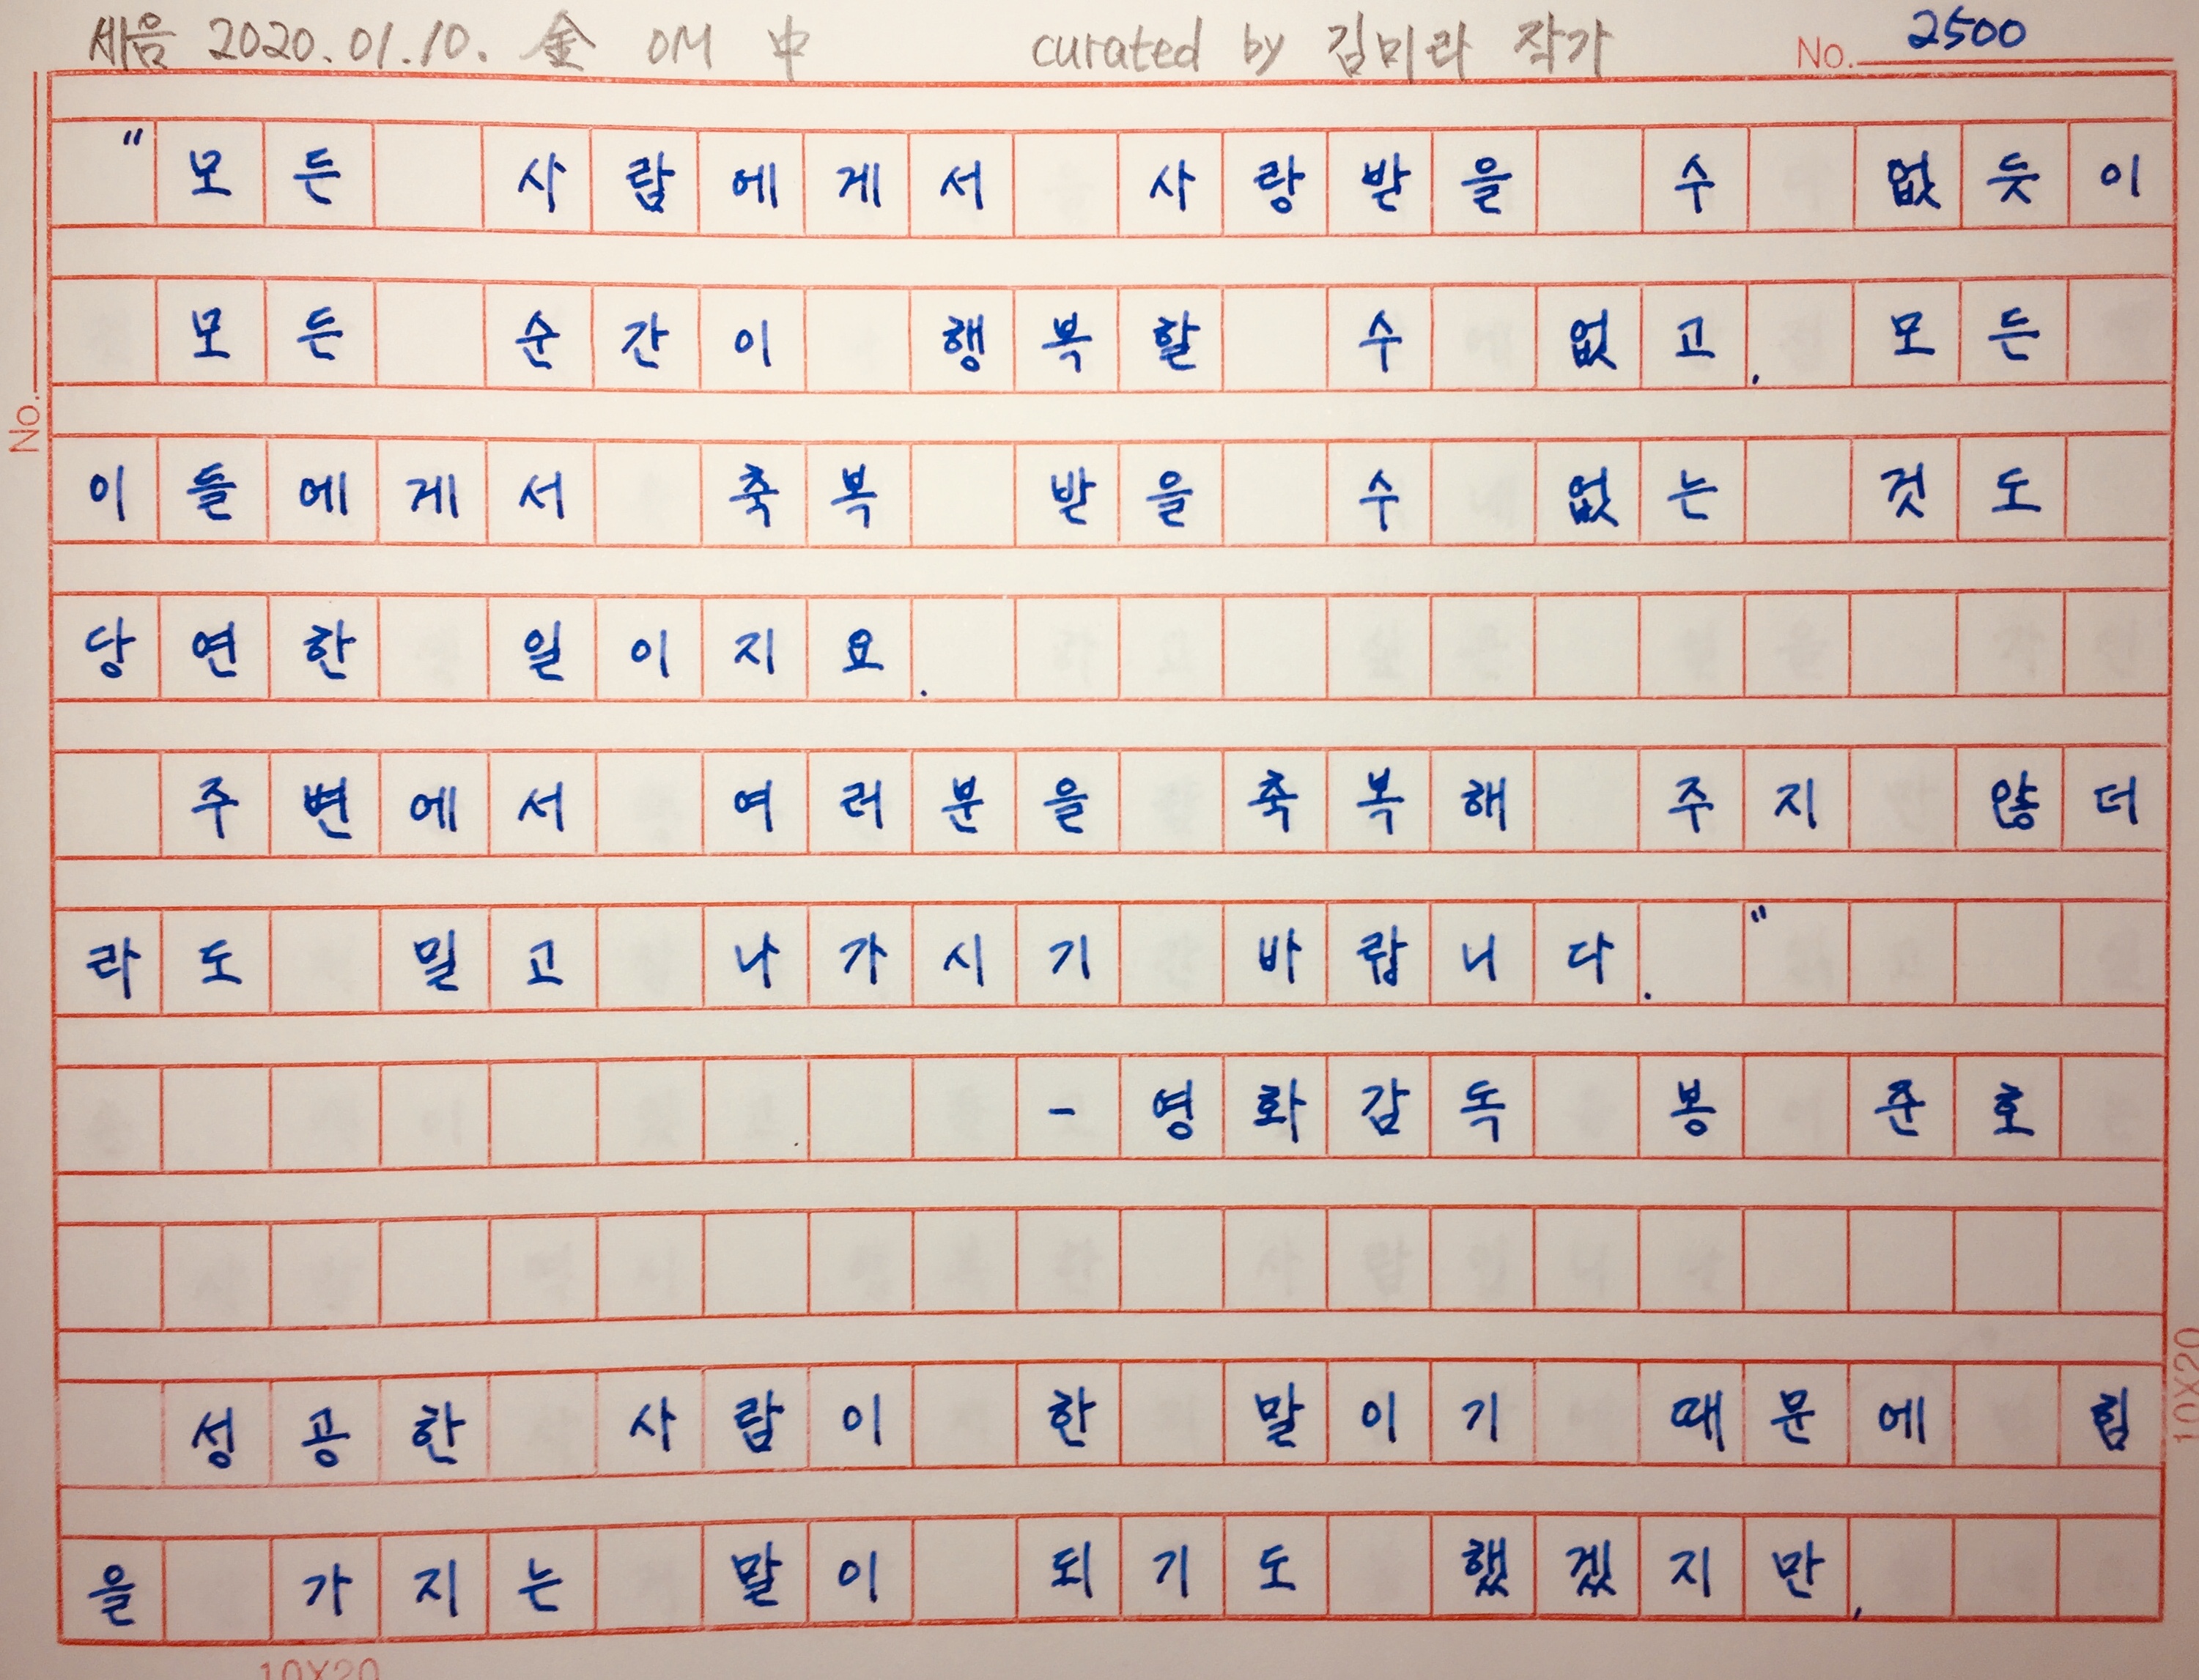 세음 2020.01.10. 金 OM 中 curated by 김미라 작가 No. 2500
"모든 사람에게서 사랑받을 수 없듯이
모든 순간이 행복할 수 없고, 모든
이들에게서 축복 받을 수 없는 것도
당연한 일이지요.
주변에서 여러분을 축복해 주지 않더
라도 밀고 나가시기 바랍니다."
- 영화감독 봉 준호
성공한 사람이 한 말이기 때문에 힘
을 가지는 말이 되기도 했겠지만,
No.
10X20
10X20